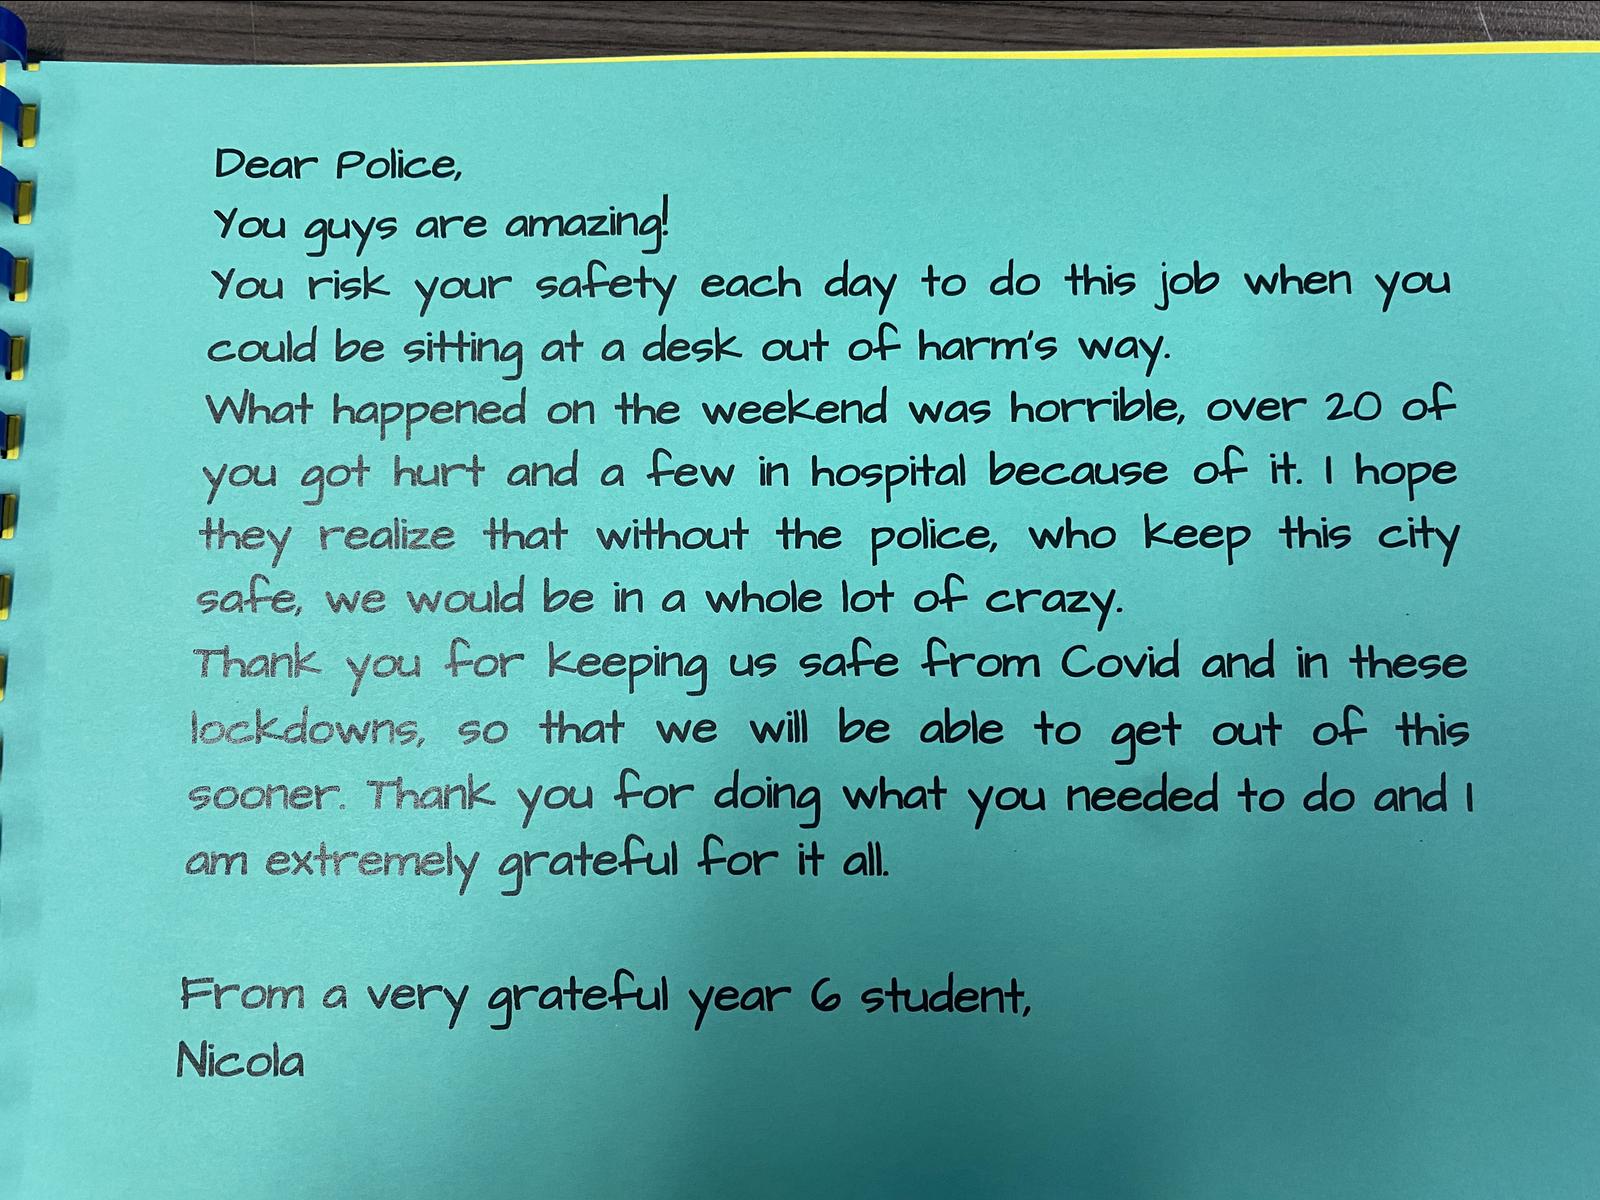 Dear Police,
You guys are amazing!
You risk your safety each day to do this job when you
could be sitting at a desk out of harm's way.
What happened on the weekend was horrible, over 20 of
you got hurt and a few in hospital because of it. I hope
they realize that without the police, who keep this city
safe, we would be in a whole lot of crazy.
Thank you for keeping us safe from Covid and in these
lockdowns, so that we will be able to get out of this
sooner. Thank you for doing what you needed to do and I
am extremely grateful for it all.
From a very grateful year 6 student,
Nicola